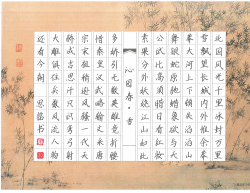 北国风光千里冰封万里
雪飘望长城内外惟余莽
莽大河上下顿失滔滔山
舞银蛇原驰蜡象欲与天
公试比高须晴日看红妆
素裹分外妖娆江山如此
沁园春·雪
多娇引无数英雄竞折腰
惜秦皇汉武略输文采唐
宗宋祖稍逊风骚一代天
骄成吉思汗只识弯弓射
大雕俱往矣数风流人物
还看今朝 思儒书